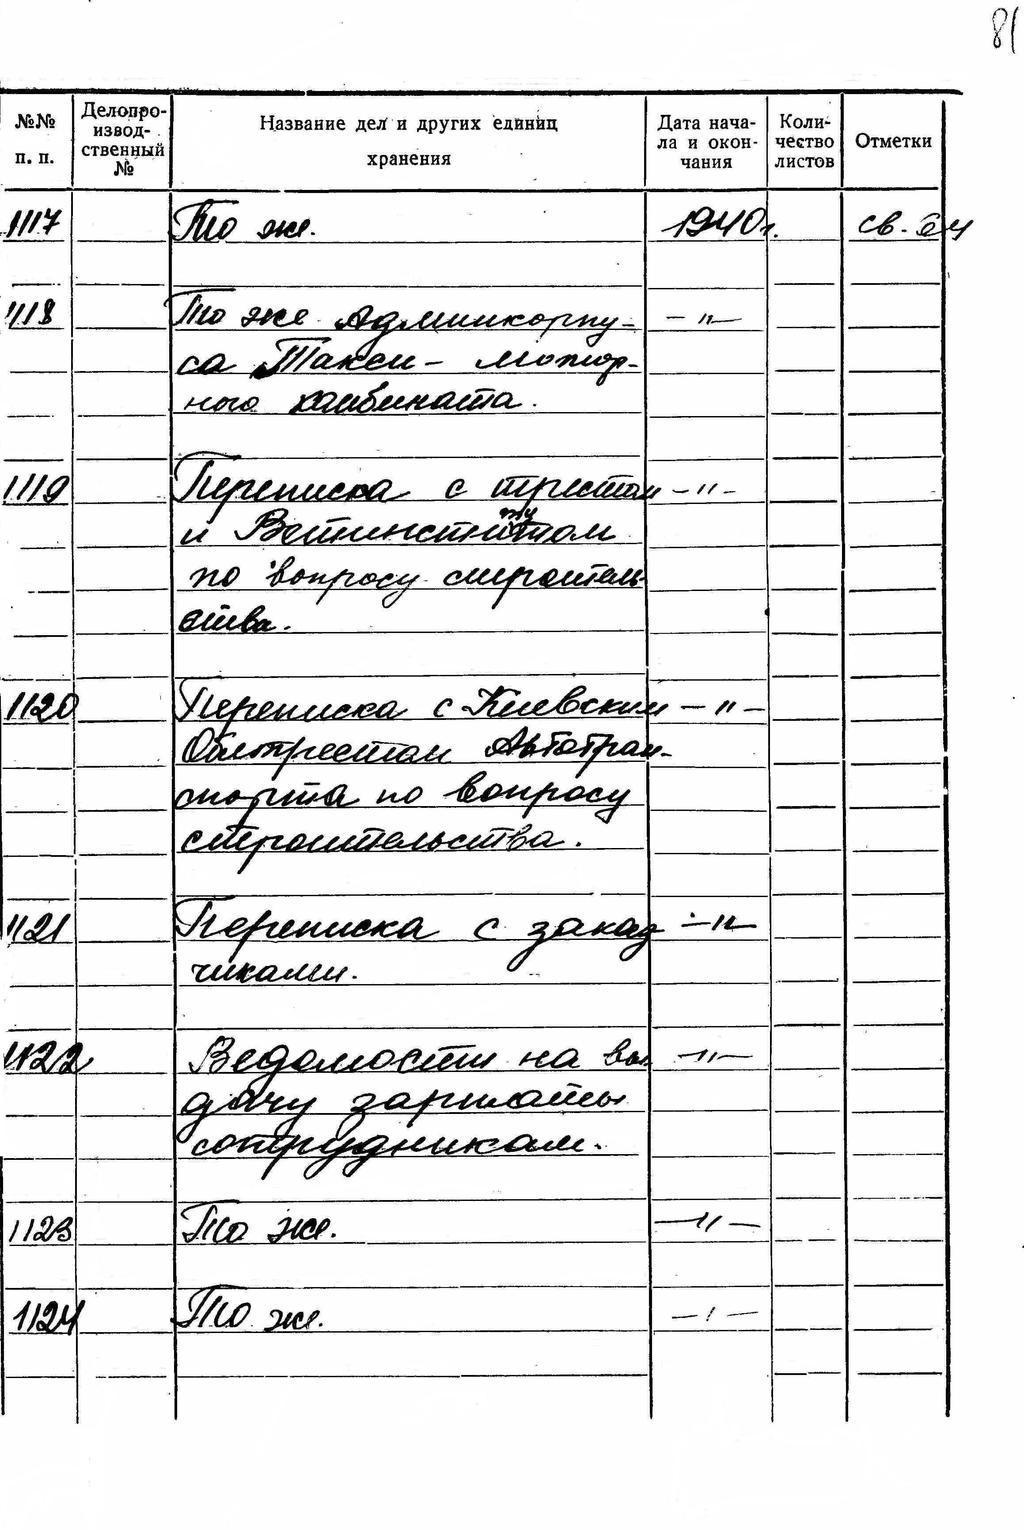 81
№№ п. п. Делопро-извод-ственный № Название дел и других единиц хранения Дата нача-ла и окон-чания Коли-чество листов Отметки
1117 То же. 1940г. св.
1118 То же Админкорпу- -"-
са Такси-мотор-
ного комбината.
1119 Переписка с трестом -"-
и Ветинститутом
по вопросу строитель-
ства.
1120 Переписка с Киевским -"-
Облтрестом Автотран-
спорта по вопросу
строительства.
1121 Переписка с заказ- -"-
чиками.
1122 Ведомости на вы- -"-
дачу зарплаты
сотрудникам.
1123 То же. -"-
1124 То же. -"-